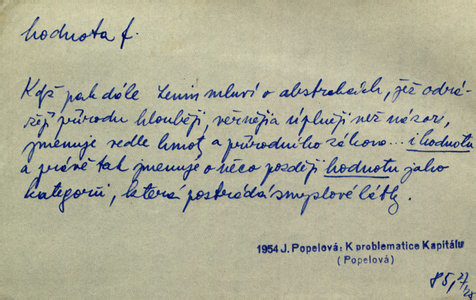 hodnota f.
Když pak dále Lenin mluví o abstrakcích, jež odrá-
žejí přírodu hlouběji, věrněji a úplněji než názor,
jmenuje vedle hmoty a přírodního zákona... i hodnotu
a právě tak jmenuje o něco později hodnotu jako
kategorii, která postrádá smyslové látky.
1954 J. Popelová: K problematice Kapitálu
(Popelová)
85,